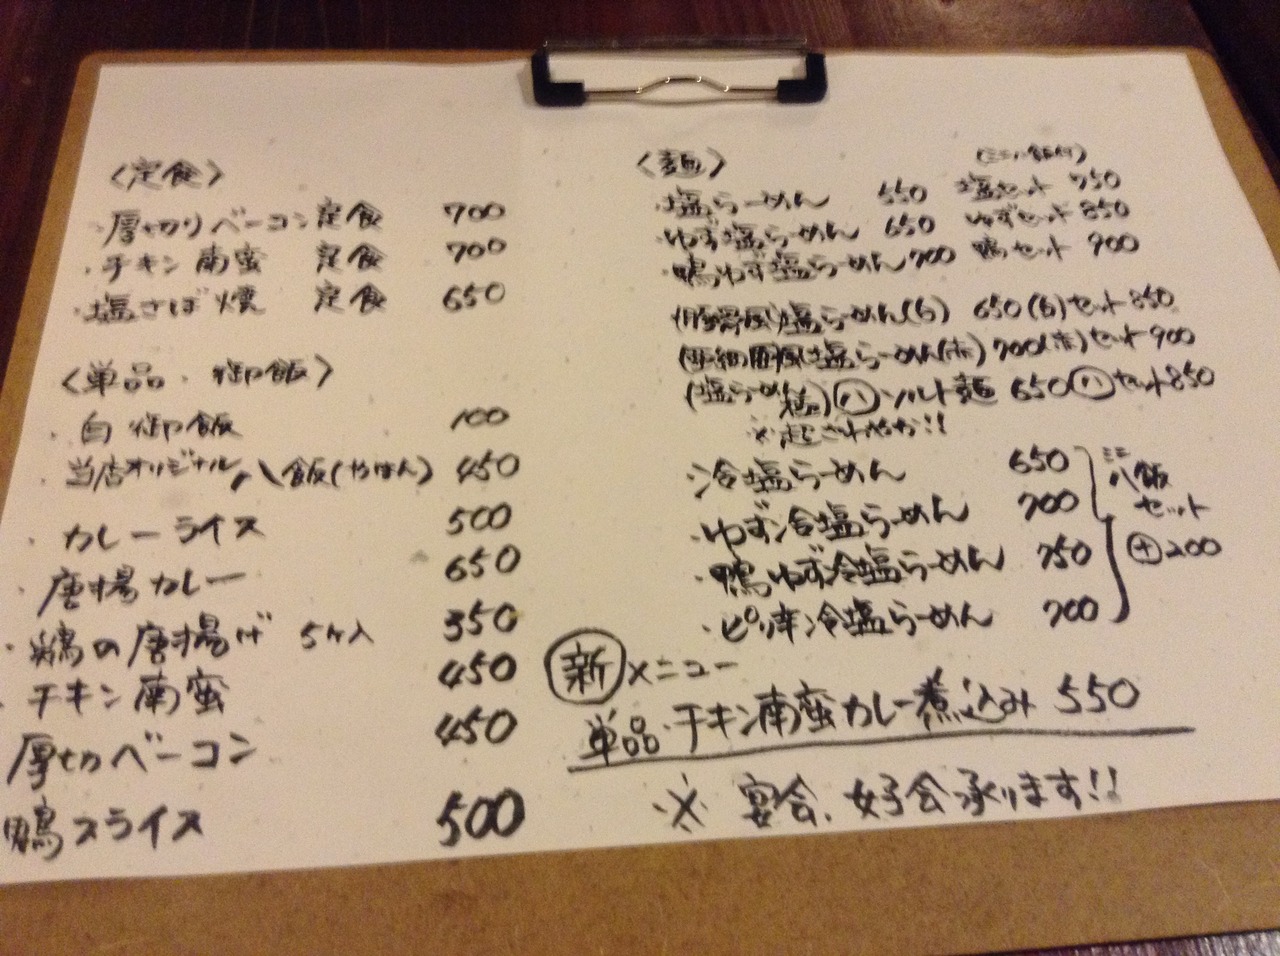 〈定食〉
・厚切りベーコン定食 700
・チキン南蛮 定食 700
・塩さば焼 定食 650
〈単品・御飯〉
・白御飯 100
・当店オリジナル八飯(やはん) 450
・カレーライス 500
・唐揚カレー 650
・鶏の唐揚げ 5ヶ入 350
・チキン南蛮 450
厚切ベーコン 450
鴨スライス 500
〈麺〉 (ミニ八飯付)
・塩らーめん 550 塩セット 750
・ゆず塩らーめん 650 ゆずセット 850
・鴨ゆず塩らーめん 700 鴨セット 900
(豚骨風)塩らーめん(白) 650 (白)セット 850
風塩らーめん(赤) 700 (赤)セット 900
(塩らーめん ) ハ ソルト麺 650 ハ セット 850
冷塩らーめん 650
・ゆず冷塩らーめん 700
・鴨ゆず冷塩らーめん 750
・ピリ辛冷塩らーめん 700
ミニ八飯
セット
+200
新メニュー
単品・チキン南蛮カレー煮込み 550
※ 宴会、女子会承ります!!